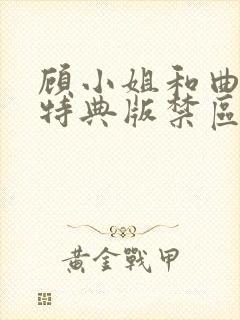 顾小姐和曲
特典版禁區
黃金戰甲